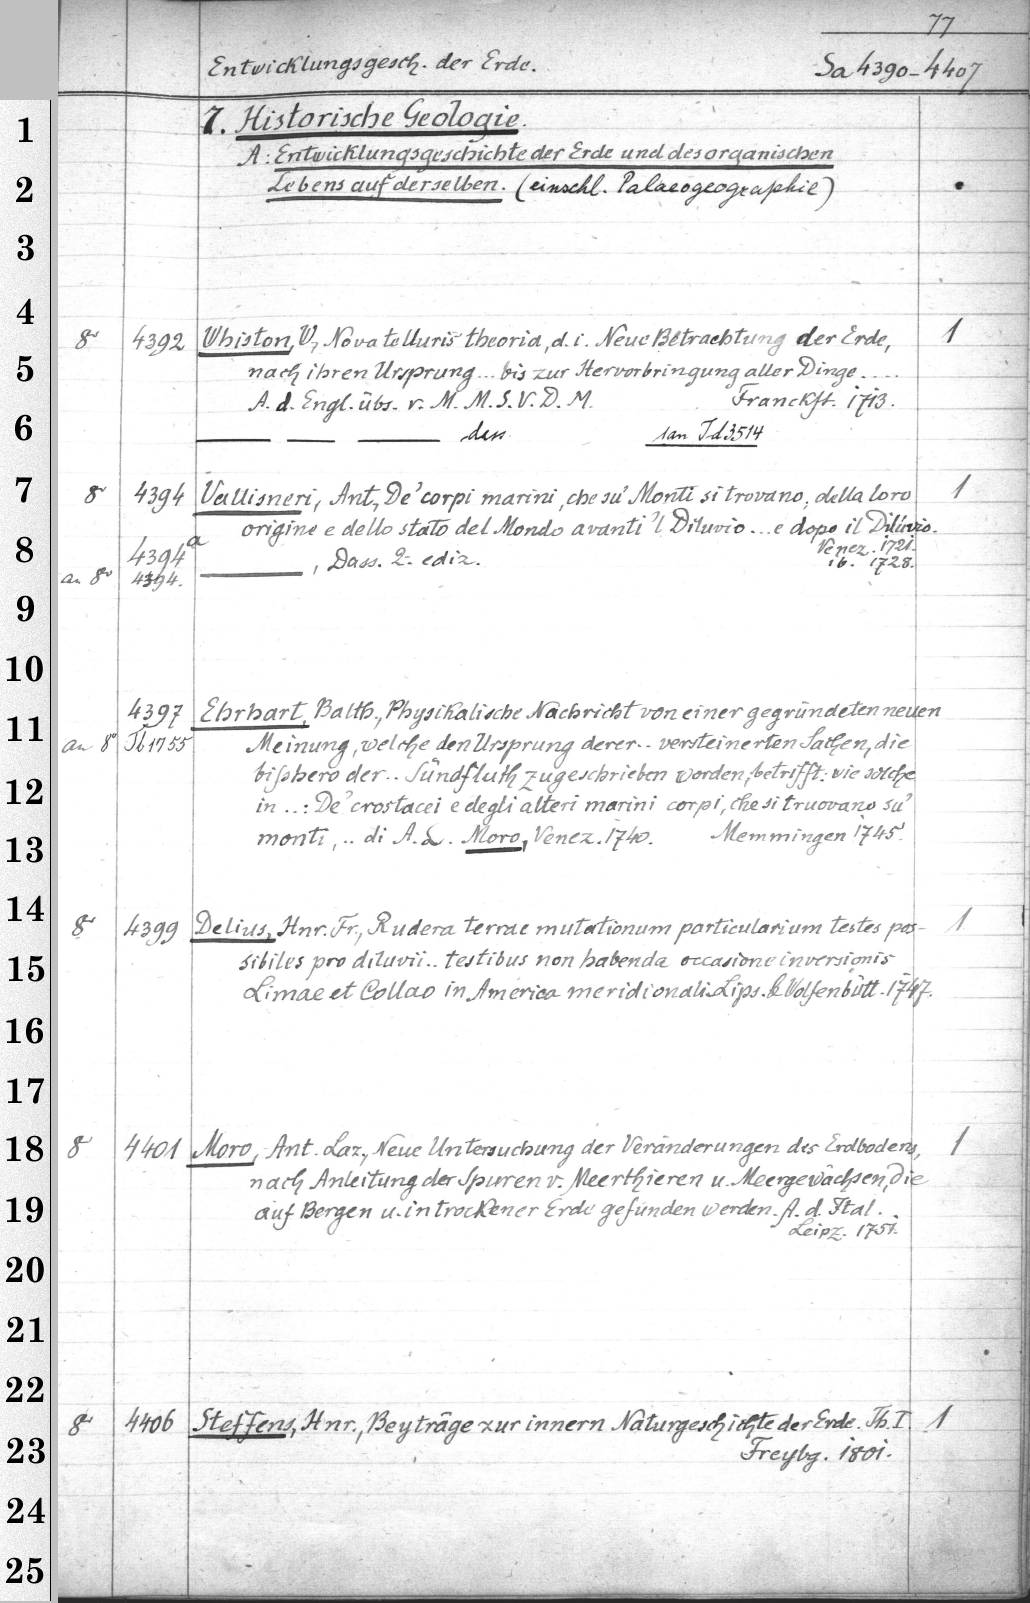 77
Entwicklungsgesch. der Erde. Sa 4390-4407
7. Historische Geologie.
A: Entwicklungsgeschichte der Erde und des organischen
Lebens auf derselben. (einschl. Palaeogeographie)
8° 4392 Whiston, W., Nova telluris theoria, d. i. Neue Betrachtung der Erde, 1
nach ihren Ursprung... bis zur Hervorbringung aller Dinge....
A. d. Engl. übs. v. M. M. S. V. D. M. Franckft. 1713.
dass. 1an Td 3514
8° 4394 Vallisneri, Ant., De' corpi marini, che su' Monti si trovano; della loro 1
origine e dello stato del Mondo avanti 'l Diluvio... e dopo il Dilúvio.
Venez. 1721.
4394a
an 8° 4394. , Dass. 2. ediz. ib. 1728.
4397 Ehrhart, Balth., Physikalische Nachricht von einer gegründeten neuen
an 8° Tb 1755 Meinung, welche den Ursprung derer.. versteinerten Sachen, die
bißhero der.. Sündfluth zugeschrieben worden, betrifft: wie solche
in ..: De' crostacei e degli alteri marini corpi, che si truovano su'
monti, .. di A. L. Moro, Venez. 1740. Memmingen 1745.
8° 4399 Delius, Hnr. Fr., Rudera terrae mutationum particularium testes pos- 1
sibiles pro diluvii.. testibus non habenda occasione inversionis
Limae et Collao in America meridionali. Lips. & Wolfenbütt. 1747.
8° 4401 Moro, Ant. Laz., Neue Untersuchung der Veränderungen des Erdbodens, 1
nach Anleitung der Spuren v. Meerthieren u. Meergewächsen, die
auf Bergen u. in trockener Erde gefunden werden. A. d. Ital.
Leipz. 1751.
8° 4406 Steffens, Hnr., Beyträge zur innern Naturgeschichte der Erde. Th. I. 1
Freybg. 1801.
1
2
3
4
5
6
7
8
9
10
11
12
13
14
15
16
17
18
19
20
21
22
23
24
25